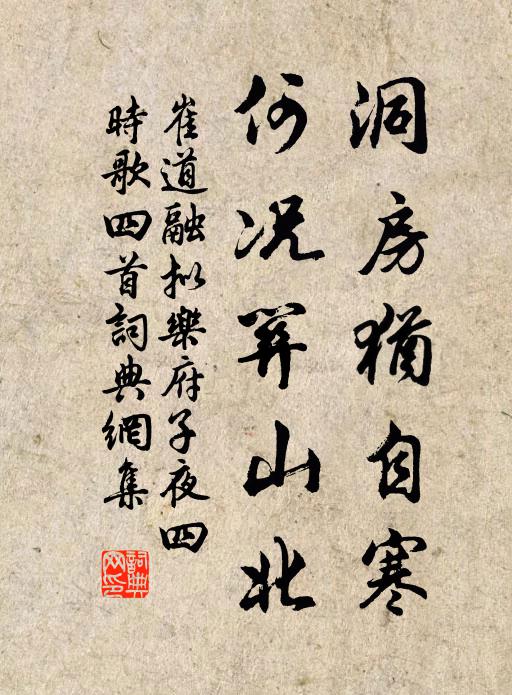 洞房猶自寒
何况關山北
崔道融拟樂府子夜四
時歌四首詞典網集
詞典
网印